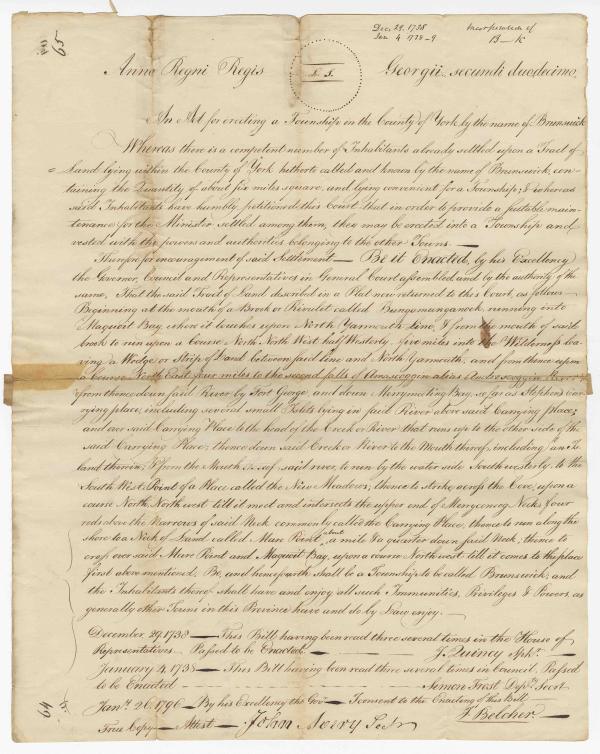 63
Dec. 29, 1738
Jan 4 1738-9
Incorporation of
B-k
Anno Regni Regis
L. S.
Georgii secundi duodecimo,
An Act for erecting a Township in the County of York by the name of Brunswick
Whereas there is a competent number of Inhabitants already settled upon a Tract of
Land lying within the County of York hitherto called and known by the name of Brunswick, con-
taining the Quantity of about six miles square, and lying convenient for a Township; & whereas
said Inhabitants have humbly petitioned this Court that in order to provide a suitable main-
tenance for the Minister settled among them, they may be erected into a Township and
vested with the powers and authorities belonging to the other Towns. —
Therefore for encouragement of said Settlement — Be it Enacted, by his Excellency
the Governor, Council and Representatives in General Court assembled and by the authority of the
same, That the said Tract of Land described in a Plat now returned to this Court, as follows
Beginning at the mouth of a Brook or Rivulet called Bungomungomock, running into
Maquoit Bay, where it touches upon North Yarmouth Line, & from the mouth of said
brook to run upon a Course North North West half Westerly five miles into the Wilderness lea-
ving a Wedge or Strip of Land between said line and North Yarmouth, and from thence upon
a Course North East four miles to the second falls of Amascoggin alias Androscoggin
from thence down said River by Fort George, and down Merrymeeting Bay, so far as Stephens Car-
rying place, including several small Islets lying in said River above said Carrying place;
and over said Carrying Place to the head of the Creek or River that runs up to the other side of the
said Carrying Place; thence down said Creek or River to the Mouth thereof, including an Is-
land therein; & from the Mouth thereof said river, to run by the water side Southwesterly to the
South West Point of a Place called the New Meadows; thence to strike across the Cove, upon a
course North Northwest till it meet and intersects the upper end of Merryconeg Neck, four
rods above the Narrows of said Neck commonly called the Carrying Place, thence to run along the
shore to a Neck of Land called Mare Point, about a mile & a quarter down said Neck, thence to
cross over said Mare Point and Maquoit Bay, upon a course Northwest till it comes to the place
first above mentioned, Be, and henceforth shall be a Township to be called Brunswick; and
the Inhabitants thereof shall have and enjoy all such Immunities, Privileges & Powers, as
generally other Towns in this Province have and do by Law enjoy. —
December 29, 1738 — This Bill having been read three several times in the House of
Representatives — Passed to be Enacted. — J. Quincy Spkr. —
January 4, 1738 — This Bill having been read three several times in Council, Passed
to be Enacted — Simon Frost Depy. Secry.
Jany. 26, 1796 — By his Excellency the Govr. — I consent to the Enacting of this Bill —
J. Belcher. —
True Copy — Attest — John Avery Secy
64